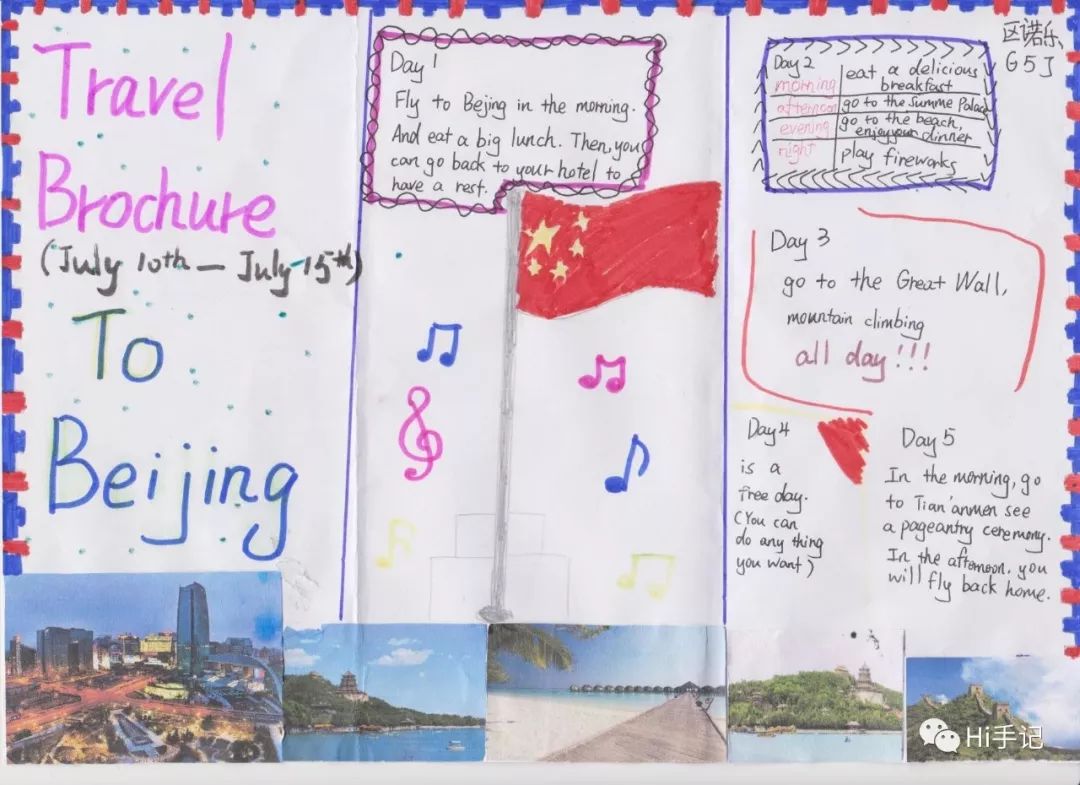 Travel
Brochure
(July 10th — July 15th)
To
Beijing
Day 1
Fly to Bejing in the morning.
And eat a big lunch. Then, you
can go back to your hotel to
have a rest.
区诺乐
G5J
Day 2
morning eat a delicious
breakfast
afternoon go to the Summe Palace
evening go to the beach,
enjoy your dinner
night play fireworks
Day 3
go to the Great Wall,
mountain climbing
all day!!!
Day 4
is a
free day.
(You can
do any thing
you want)
Day 5
In the morning, go
to Tian'anmen see
a pageantry ceremony.
In the afternoon, you
will fly back home.
Hi手记